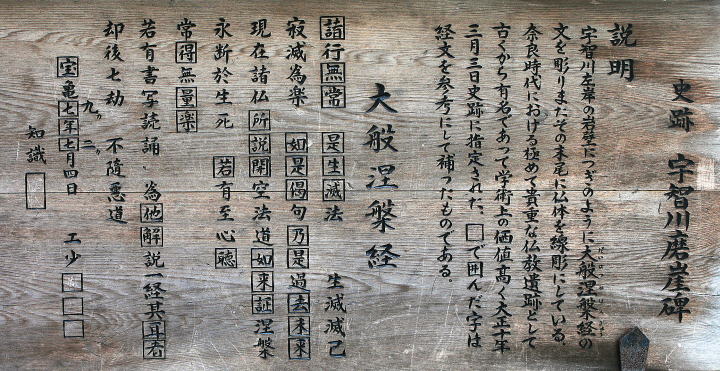 史跡 宇智川磨崖碑
説明
宇智川左岸の岩壁につぎのように大般涅槃経の
文を彫りまたその末尾に仏体を線彫にしている。
奈良時代における極めて貴重な仏教遺跡として
古くから有名であって学術上の価値高く大正十年
三月三日史跡に指定された、□で囲んだ字は
経文を参考にして補ったものである。
大般涅槃経
諸行無常 是生滅法 生滅滅已
寂滅為楽 如是偈句 乃是過去未来
現在諸仏所説開空法道如来証涅槃
永断於生死 若有至心聴
常得無量楽
若有書写読誦、為他解説一経其耳者
却後七劫 不随悪道
九、二、
宝亀七年七月四日 工少□□□
知識□